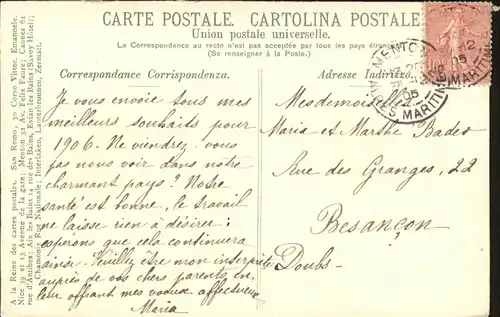 CARTE POSTALE. CARTOLINA POSTALE
Union postale universelle.
La Correspondance au recto n'est pas acceptée par tous les pays étran
(Se renseigner à la Poste.)
Correspondance Corrispondenza.
Adresse Indirizzo.
Je vous envoie tous mes
meilleurs souhaits pour
1906. Ne viendrez-vous
pas nous voir dans notre
charmant pays? Notre
santé est bonne, le travail
ne laisse rien à désirer;
esperons que cela continuera
ainsi. Veuillez être mon interprète
auprès de vos chers parents en
leur offrant mes voeux affectueux
Maria
Mesdemoiselles
Maria et Marthe Bader
Rue des Granges, 22
Besançon
Doubs
MENTON
05
ALPES MARITIMES
A la Reine des cartes postales. San Remo, 30 Corso Vittor. Emanuele.
Nice 39 et 13 Avenue de la gare; Menton 32 Av. Felix Faure; Cannes 61
rue d'Antibes; Aix les Bains 14 rue des Bains, Evian les Bains (Savoy Hôtel);
Chamonix Rue Nationale; Interlaken, Lauterbrunnen, Zermatt.